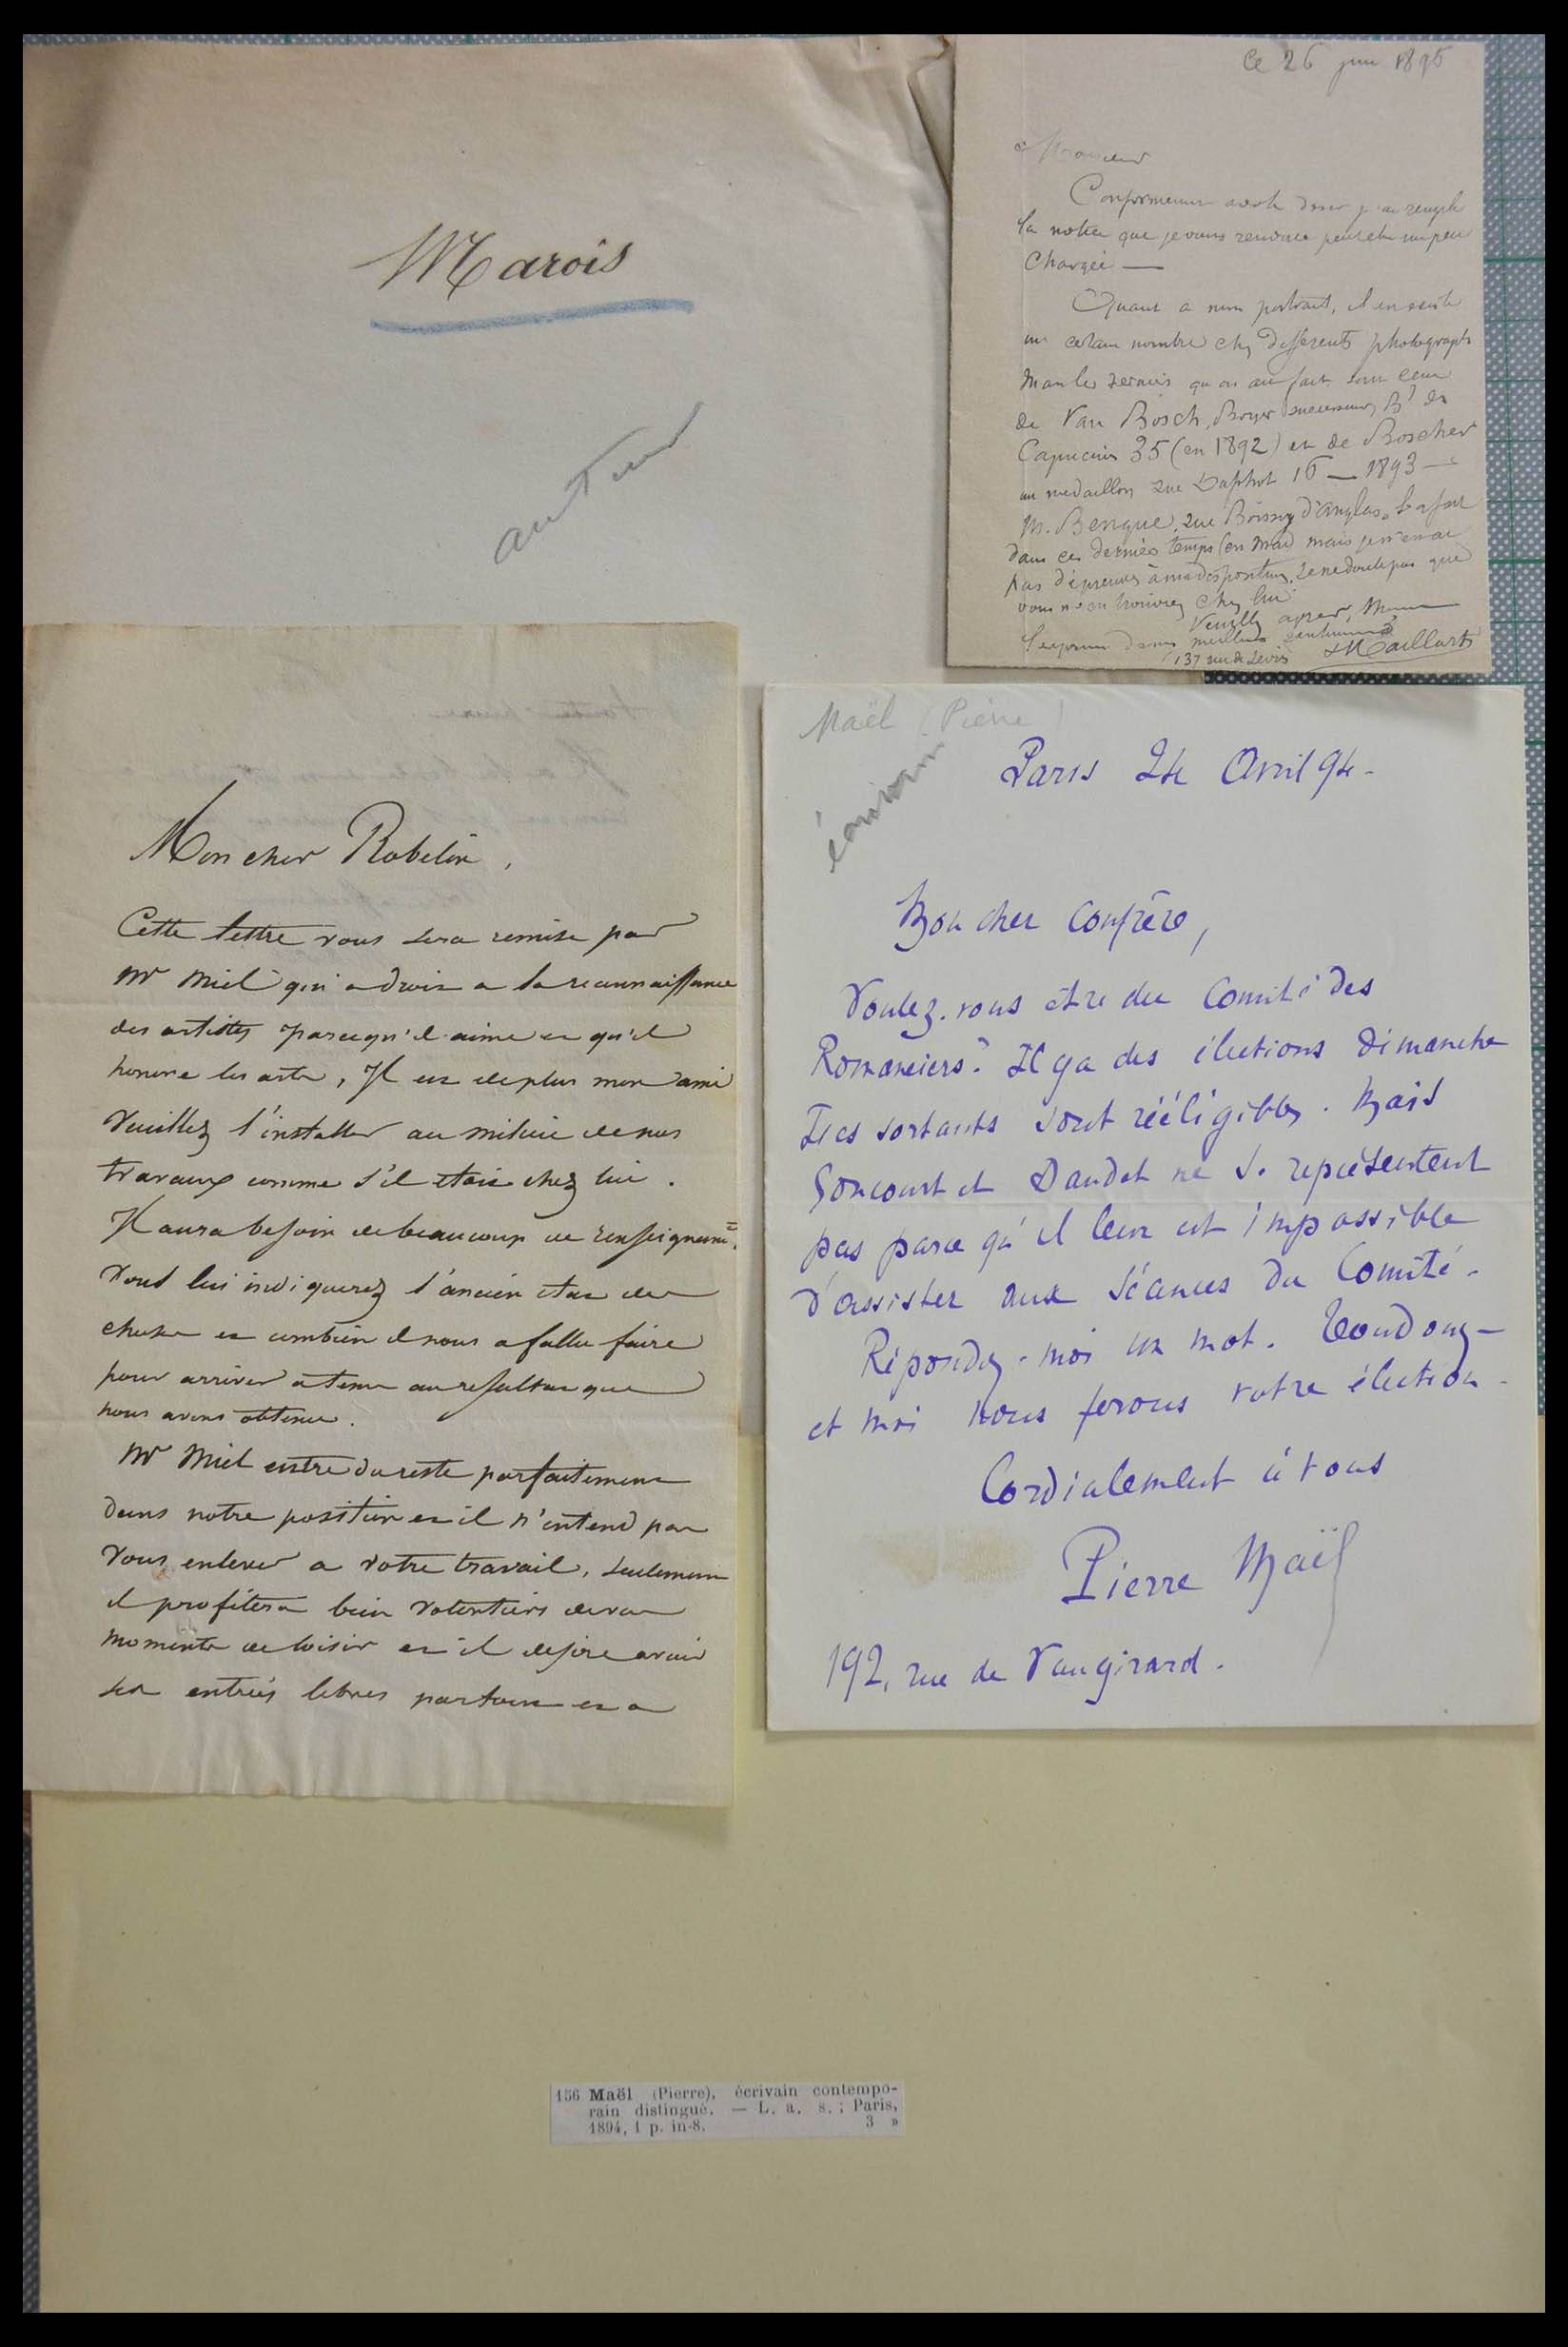 Marois
auteur
Ce 26 juin 1896
Monsieur
Conformement j'ai rempli
la notice que je vous renvoie peut etre un peu
Chargée —
Quant a mon portrait, il en existe
un certain nombre chez differents photographes
Mais les derniers qu on ait fait sont ceux
de Van Bosch, Boyer successeur, Bd des
Capucines 35 (en 1892) et de Boscher
un medaillon rue Daphot 16 — 1893 —
M. Benque, rue Boissy d'Anglas, l'a fait
dans ces derniers temps (en Mai) mais je n'en ai
pas d'épreuves à ma disposition. Je ne doute pas que
vous n'en trouviez chez lui.
Veuillez agreer, Monsieur
l'expression de mes meilleurs sentiments
137 rue de Levis Maillart
Mon cher Robelin,
Cette lettre vous sera remise par
Mr Miel qui a droit a la reconnaissance
des artistes parcequ'il aime et qu'il
honore les arts, Il est de plus mon ami
Veuillez l'installer au milieu de nos
travaux comme s'il etait chez lui.
Il aura besoin de beaucoup de renseignemts.
Vous lui indiquerez l'ancien etat des
choses et combien il nous a fallu faire
pour arriver a tenir au resultat que
nous avons obtenu.
Mr Miel entre du reste parfaitement
dans notre position et il n'entend pas
Vous enlever a votre travail, seulement
il profitera bien volontiers de vos
moments de loisir et il desire avoir
ses entrées libres partout et a
Maël (Pierre)
écrivain
Paris 24 Avril 94 -
Mon cher Confrère,
Voulez-vous être du Comité des
Romanciers? Il y a des élections Dimanche
Les sortants sont rééligibles. Mais
Goncourt et Daudet ne se représentent
pas parce qu'il leur est impossible
d'assister aux Séances du Comité -
Répondez-moi un mot. Toudouze
et moi nous ferons votre élection -
Cordialement à vous
Pierre Maël
192, rue de Vaugirard.
156 Maël (Pierre), écrivain contempo-
rain distingué. — L. a. s. ; Paris,
1894, 1 p. in-8. 3 »